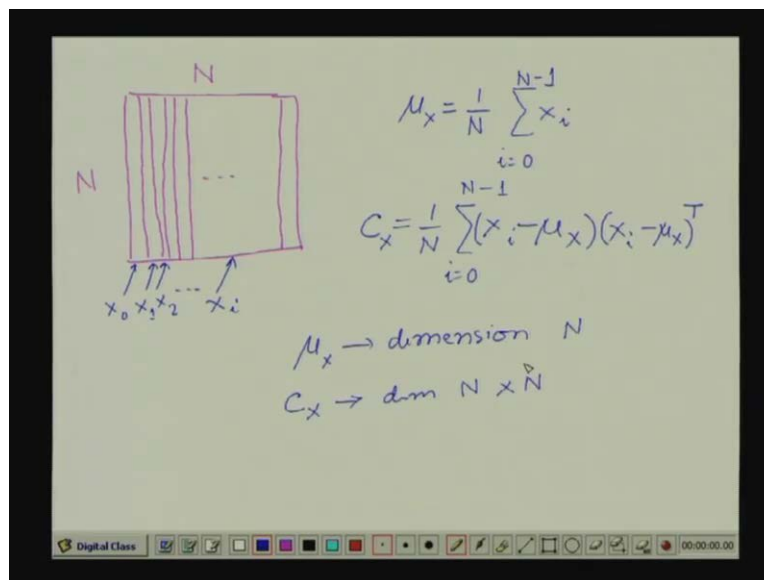 N
N
...
x₀ x₁ x₂ ... xᵢ
μₓ = 1/N Σ xᵢ
N-1
i=0
Cₓ = 1/N Σ (xᵢ - μₓ)(xᵢ - μₓ)ᵀ
N-1
i=0
μₓ → dimension N
Cₓ → dim N x N
Digital Class
00:00:00.00